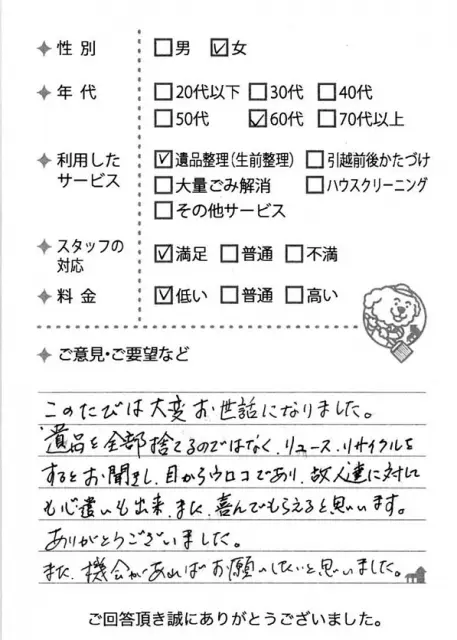 性別 □男 ☑女
年代 □20代以下 □30代 □40代
□50代 ☑60代 □70代以上
利用したサービス ☑遺品整理(生前整理) □引越前後かたづけ
□大量ごみ解消 □ハウスクリーニング
□その他サービス
スタッフの対応 ☑満足 □普通 □不満
料金 ☑低い □普通 □高い
ご意見・ご要望など
このたびは大変お世話になりました。
遺品を全部捨てるのではなく、リユース、リサイクルを
するとお聞きし、目からウロコであり、故人達に対して
も心遣いも出来、また、喜んでもらえると思います。
ありがとうございました。
また、機会があればお願いしたいと思いました。
ご回答頂き誠にありがとうございました。